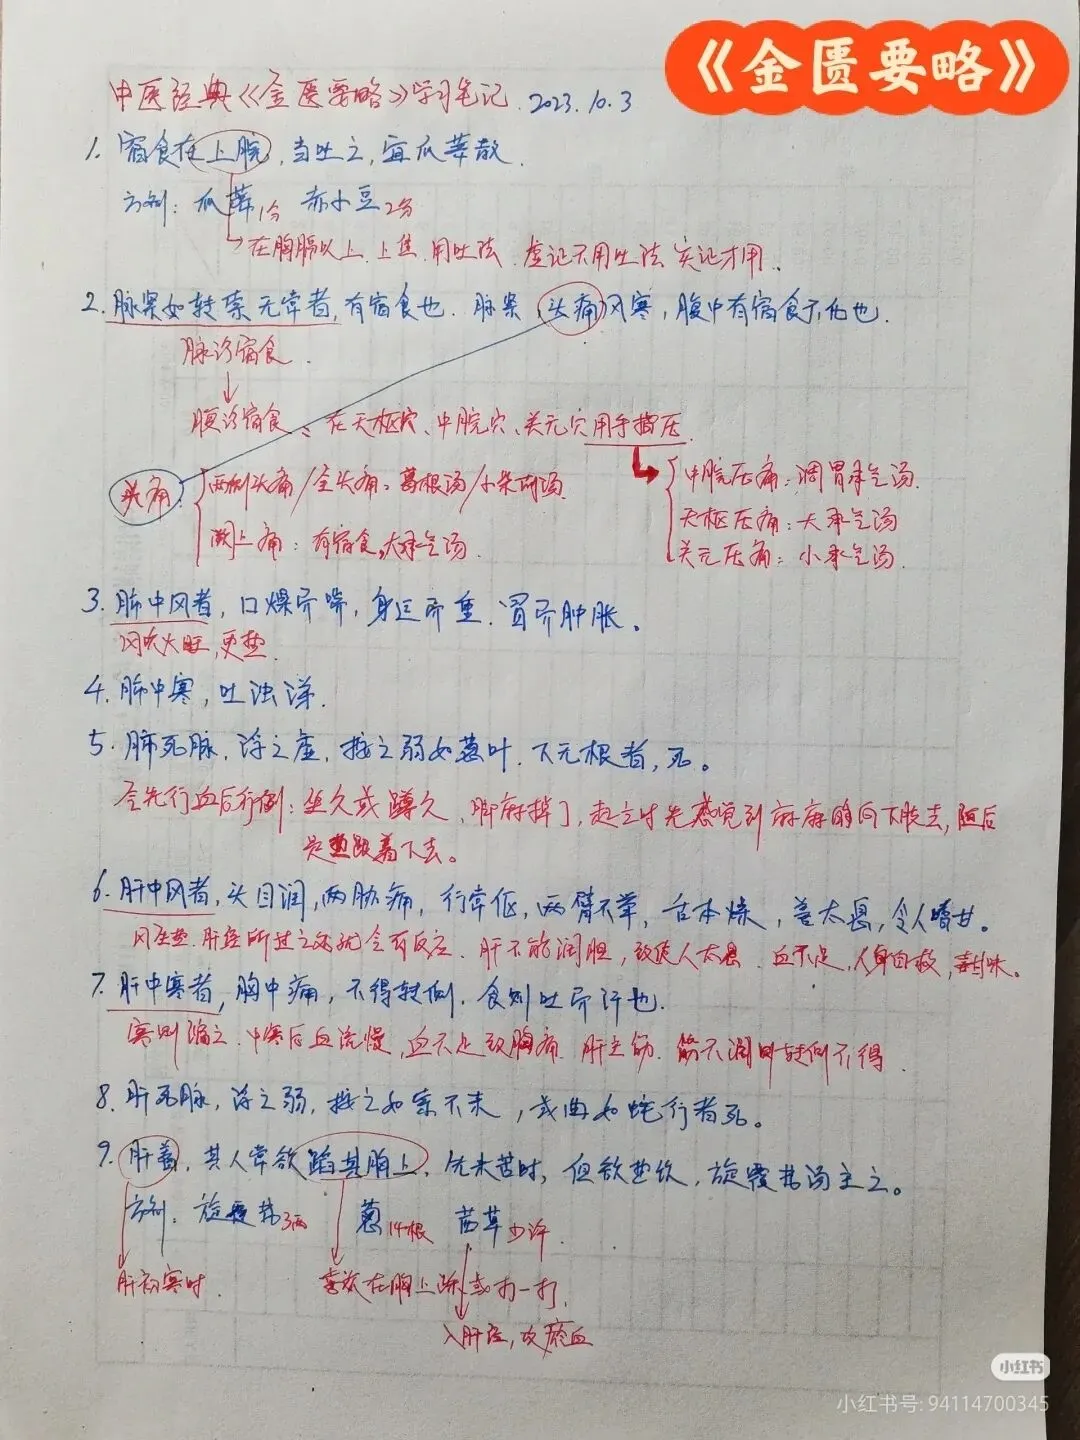 《金匮要略》
中医经典《金匮要略》学习笔记. 2023.10.3
1. 宿食在上脘, 当吐之, 宜瓜蒂散.
方剂: 瓜蒂1分 赤小豆2分
在胸膈以上.上焦.用吐法.虚证不用吐法 实证才用.
2. 脉紧如转索无常者, 有宿食也. 脉紧, 头痛风寒, 腹中有宿食不化也.
脉诊宿食.
腹诊宿食: 在天枢穴、中脘穴、关元穴用手按压.
头痛 两侧头痛/全头痛: 葛根汤/小柴胡汤.
中脘压痛: 调胃承气汤.
阙上痛: 有宿食,大承气汤.
天枢压痛: 大承气汤
关元压痛: 小承气汤.
3. 肺中风者, 口燥而喘, 身运而重. 冒而肿胀.
风吹火旺,更热.
4. 肺中寒, 吐浊涕.
5. 肺死脉, 浮之虚, 按之弱如葱叶, 下无根者, 死。
气先行血后行例: 坐久或蹲久, 脚麻掉了, 起立时先感觉到麻麻的向下肢去, 随后
是热跟着下去。
6. 肝中风者, 头目瞤, 两胁痛, 行常伛, 两臂不举, 舌本燥, 善太息, 令人嗜甘。
风生热.肝经所过之处就会有反应. 肝不能润胆, 致使人太息. 血不足, 人身自救, 喜甘味。
7. 肝中寒者, 胸中痛, 不得转侧. 食则吐而汗也.
寒则缩之.中寒后血流慢, 血不足致胸痛. 肝主筋. 筋不润则转侧不得.
8. 肝死脉, 浮之弱, 按之如索不来, 或曲如蛇行者死。
9. 肝着, 其人常欲蹈其胸上, 先未苦时, 但欲热饮, 旋覆花汤主之。
方剂: 旋覆花3两 葱14根 茜草少许.
肝初寒时. 喜欢在胸上踩或打一打.
入肝经, 攻瘀血
小红书
小红书号: 94114700345